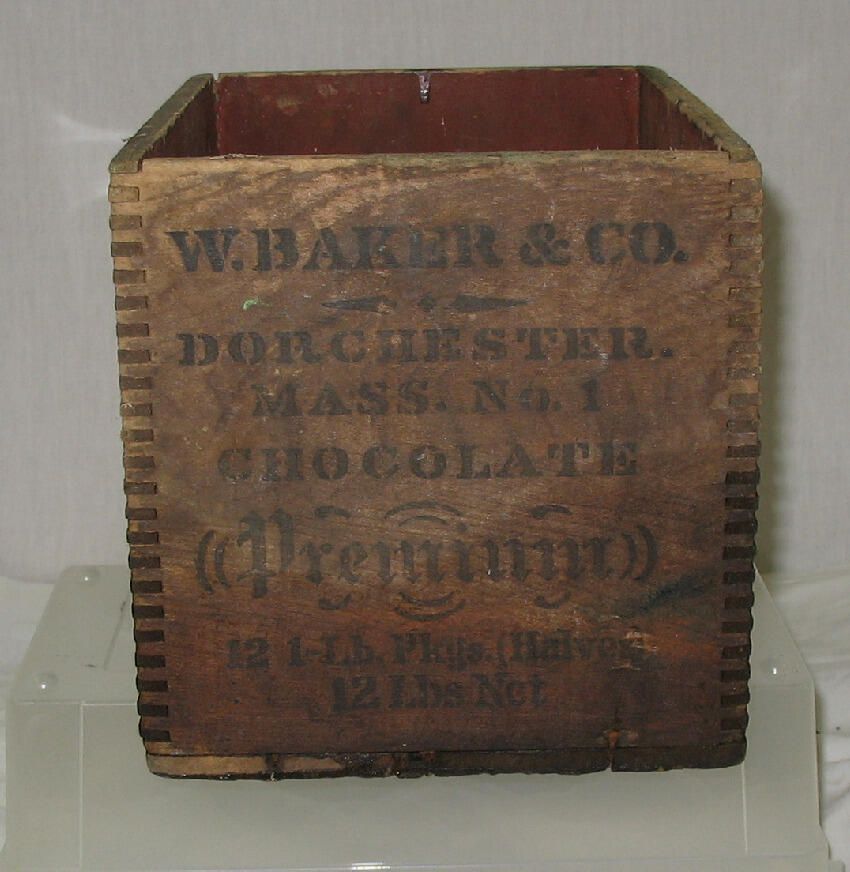 W. BAKER & CO.
DORCHESTER.
MASS. No. 1
CHOCOLATE
Premium
12 1-Lb. Pkgs. (Halves)
12 Lbs Net